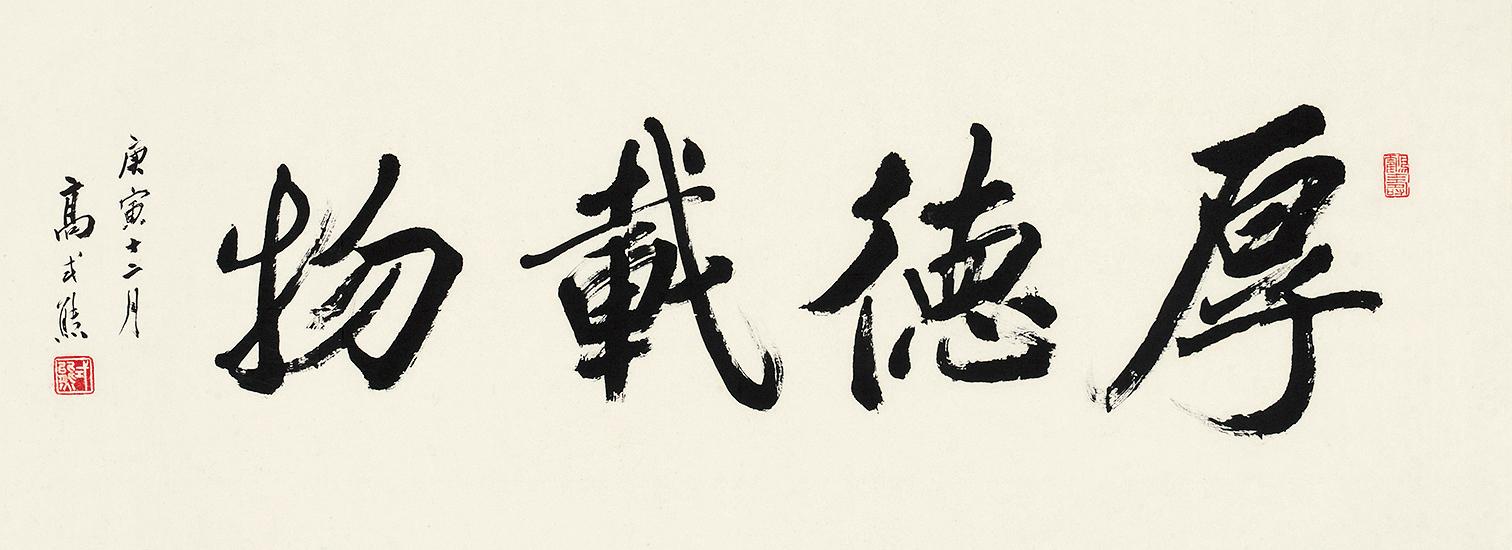 厚德載物
庚寅十二月
高式熊